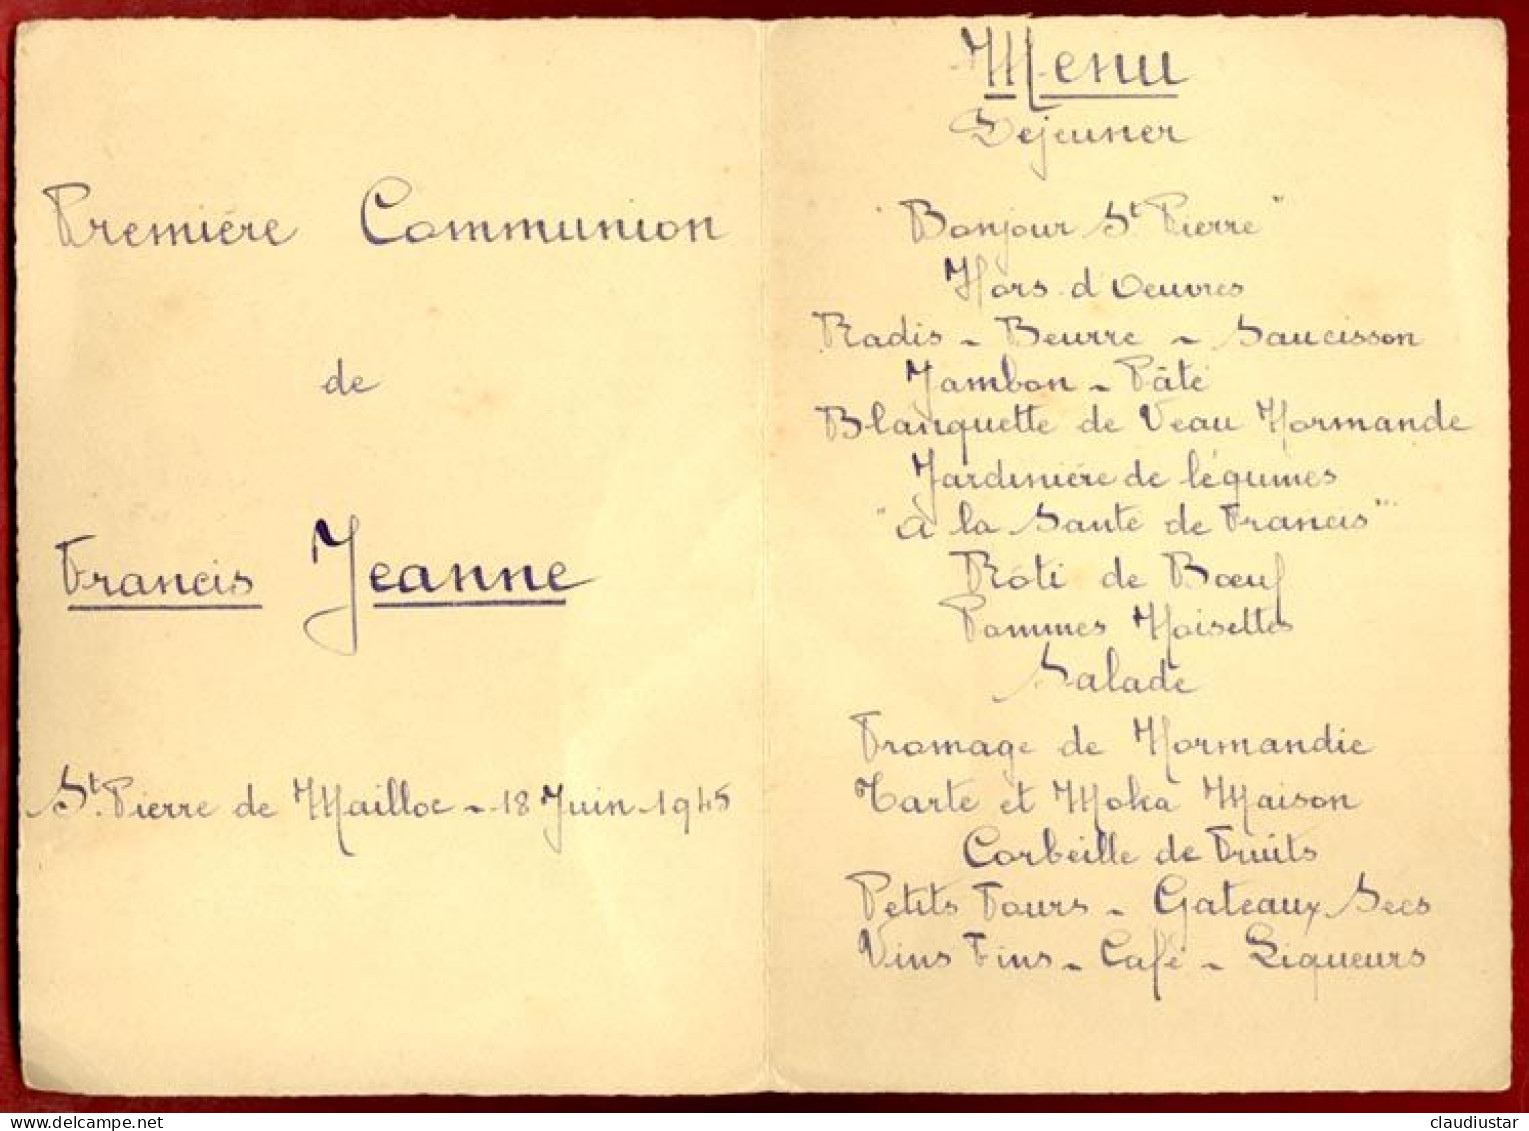 Première Communion
de
Francis Jeanne
St. Pierre de Mailloc - 18 Juin 1945
Menu
Dejeuner
"Bonjour St Pierre"
Hors d'Oeuvres
Radis - Beurre - Saucisson
Jambon - Pâté
Blanquette de Veau Normande
Jardinière de légumes
"à la Santé de Francis"
Rôti de Bœuf
Pommes Noisettes
Salade
Fromage de Normandie
Tarte et Moka Maison
Corbeille de Fruits
Petits Fours - Gateaux Secs
Vins Fins - Café - Liqueurs
claudiustar